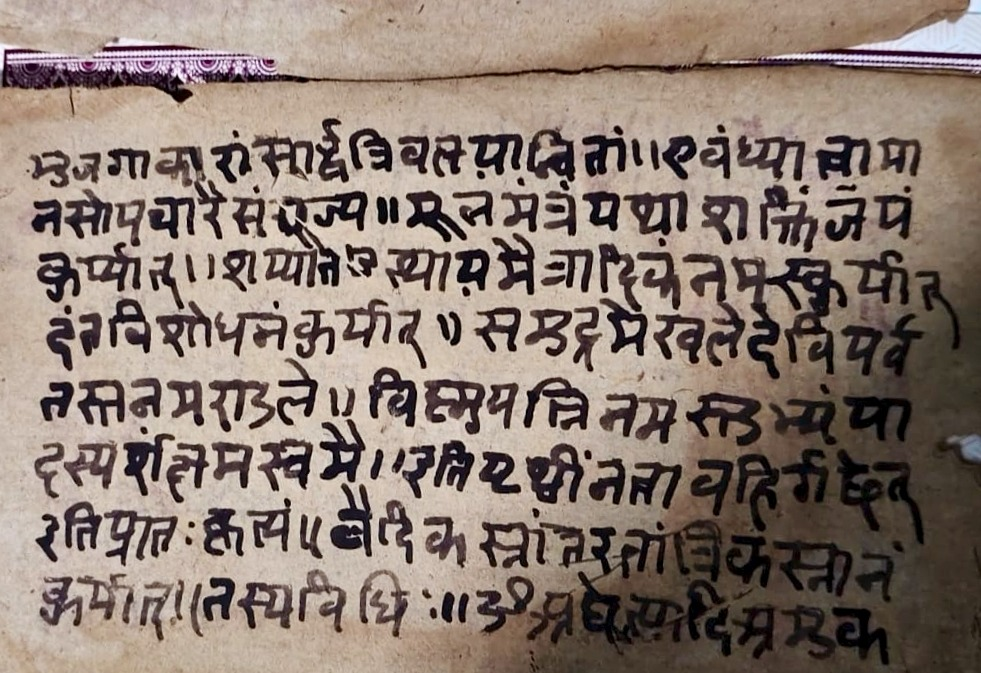 मुजगाकारां सार्द्धत्रिवलयान्वितां।।एवंध्यात्वामा
नसोपचारैसंपूज्य॥मूलमंत्रंयथाशक्तिंजपं
कुर्य्यात्।।शय्योत उ स्थायमैत्रादिकंनमस्कुर्यात्
दंतविशोधनंकुर्यात्॥समुद्रमेखलेदेविपर्व
तस्तनमराडले॥विष्णुपत्निनमस्तुभ्यंपा
दस्पर्शंक्षमस्वमै।।इतिपृथ्वींनत्वावहिर्गछेत्
इतिप्रातःकृत्यं॥वैदिकस्नांतरतांत्रिकंस्नानं
कुर्यात्।।तस्यविधिः॥ॐअद्येत्यादिअमुक